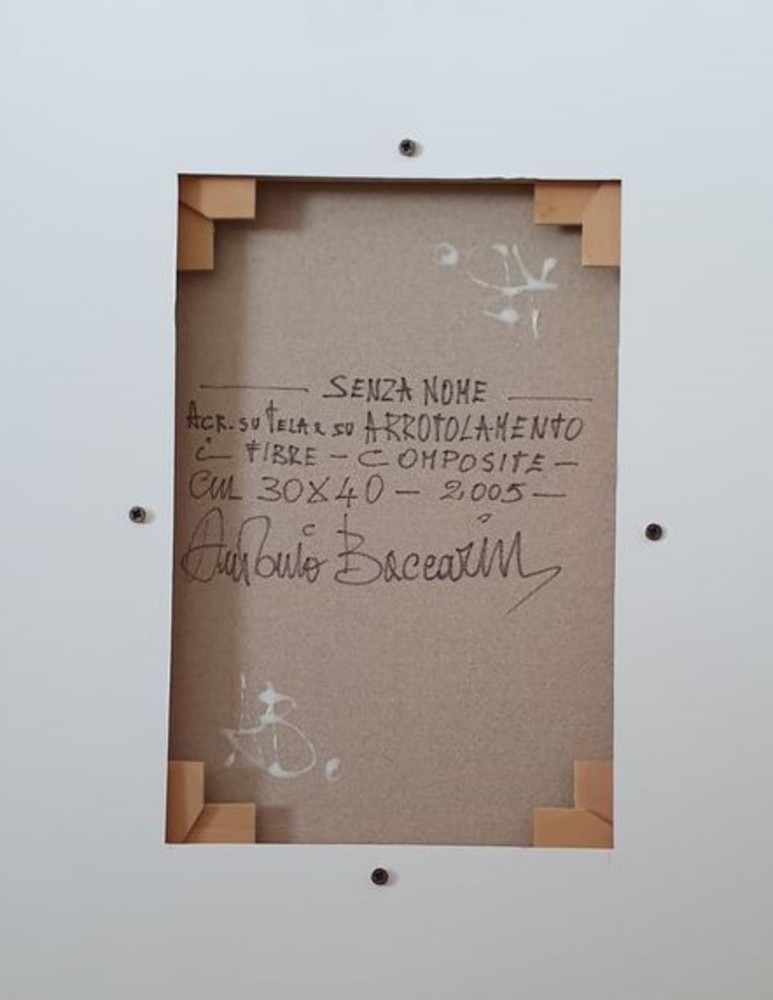 — SENZA NOME —
ACR. SU TELA E SU ARROTOLAMENTO
i FIBRE - COMPOSITE -
CM 30X40 - 2005 -
Antonio Baccarin